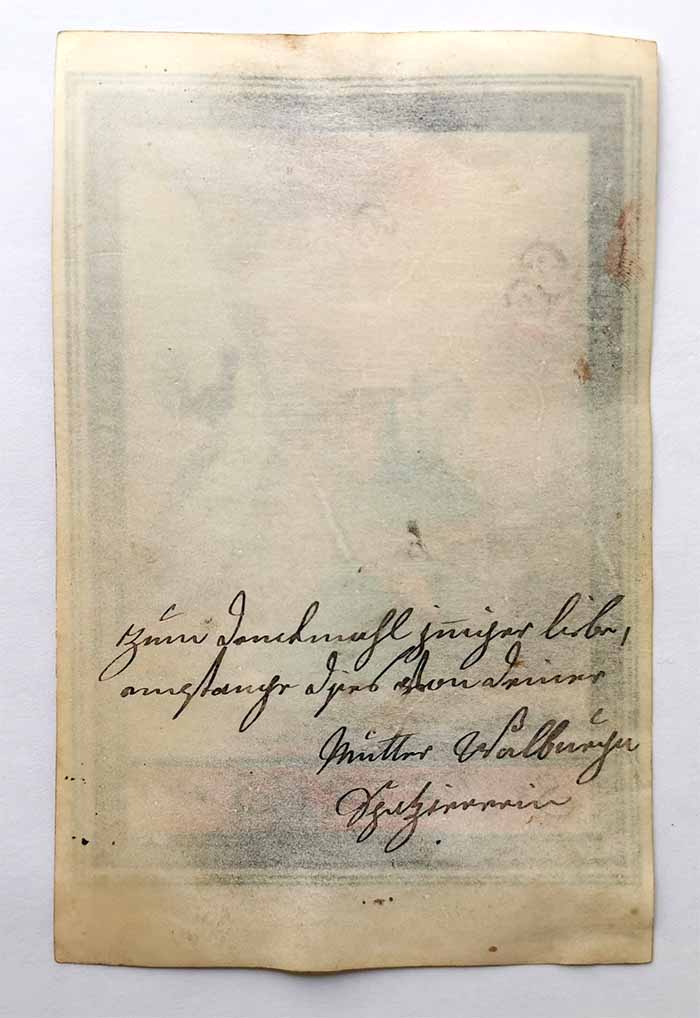 Zum Denckmahl jnniger liebe,
empfange dies von deiner
Mutter Walburga
Spatziererin